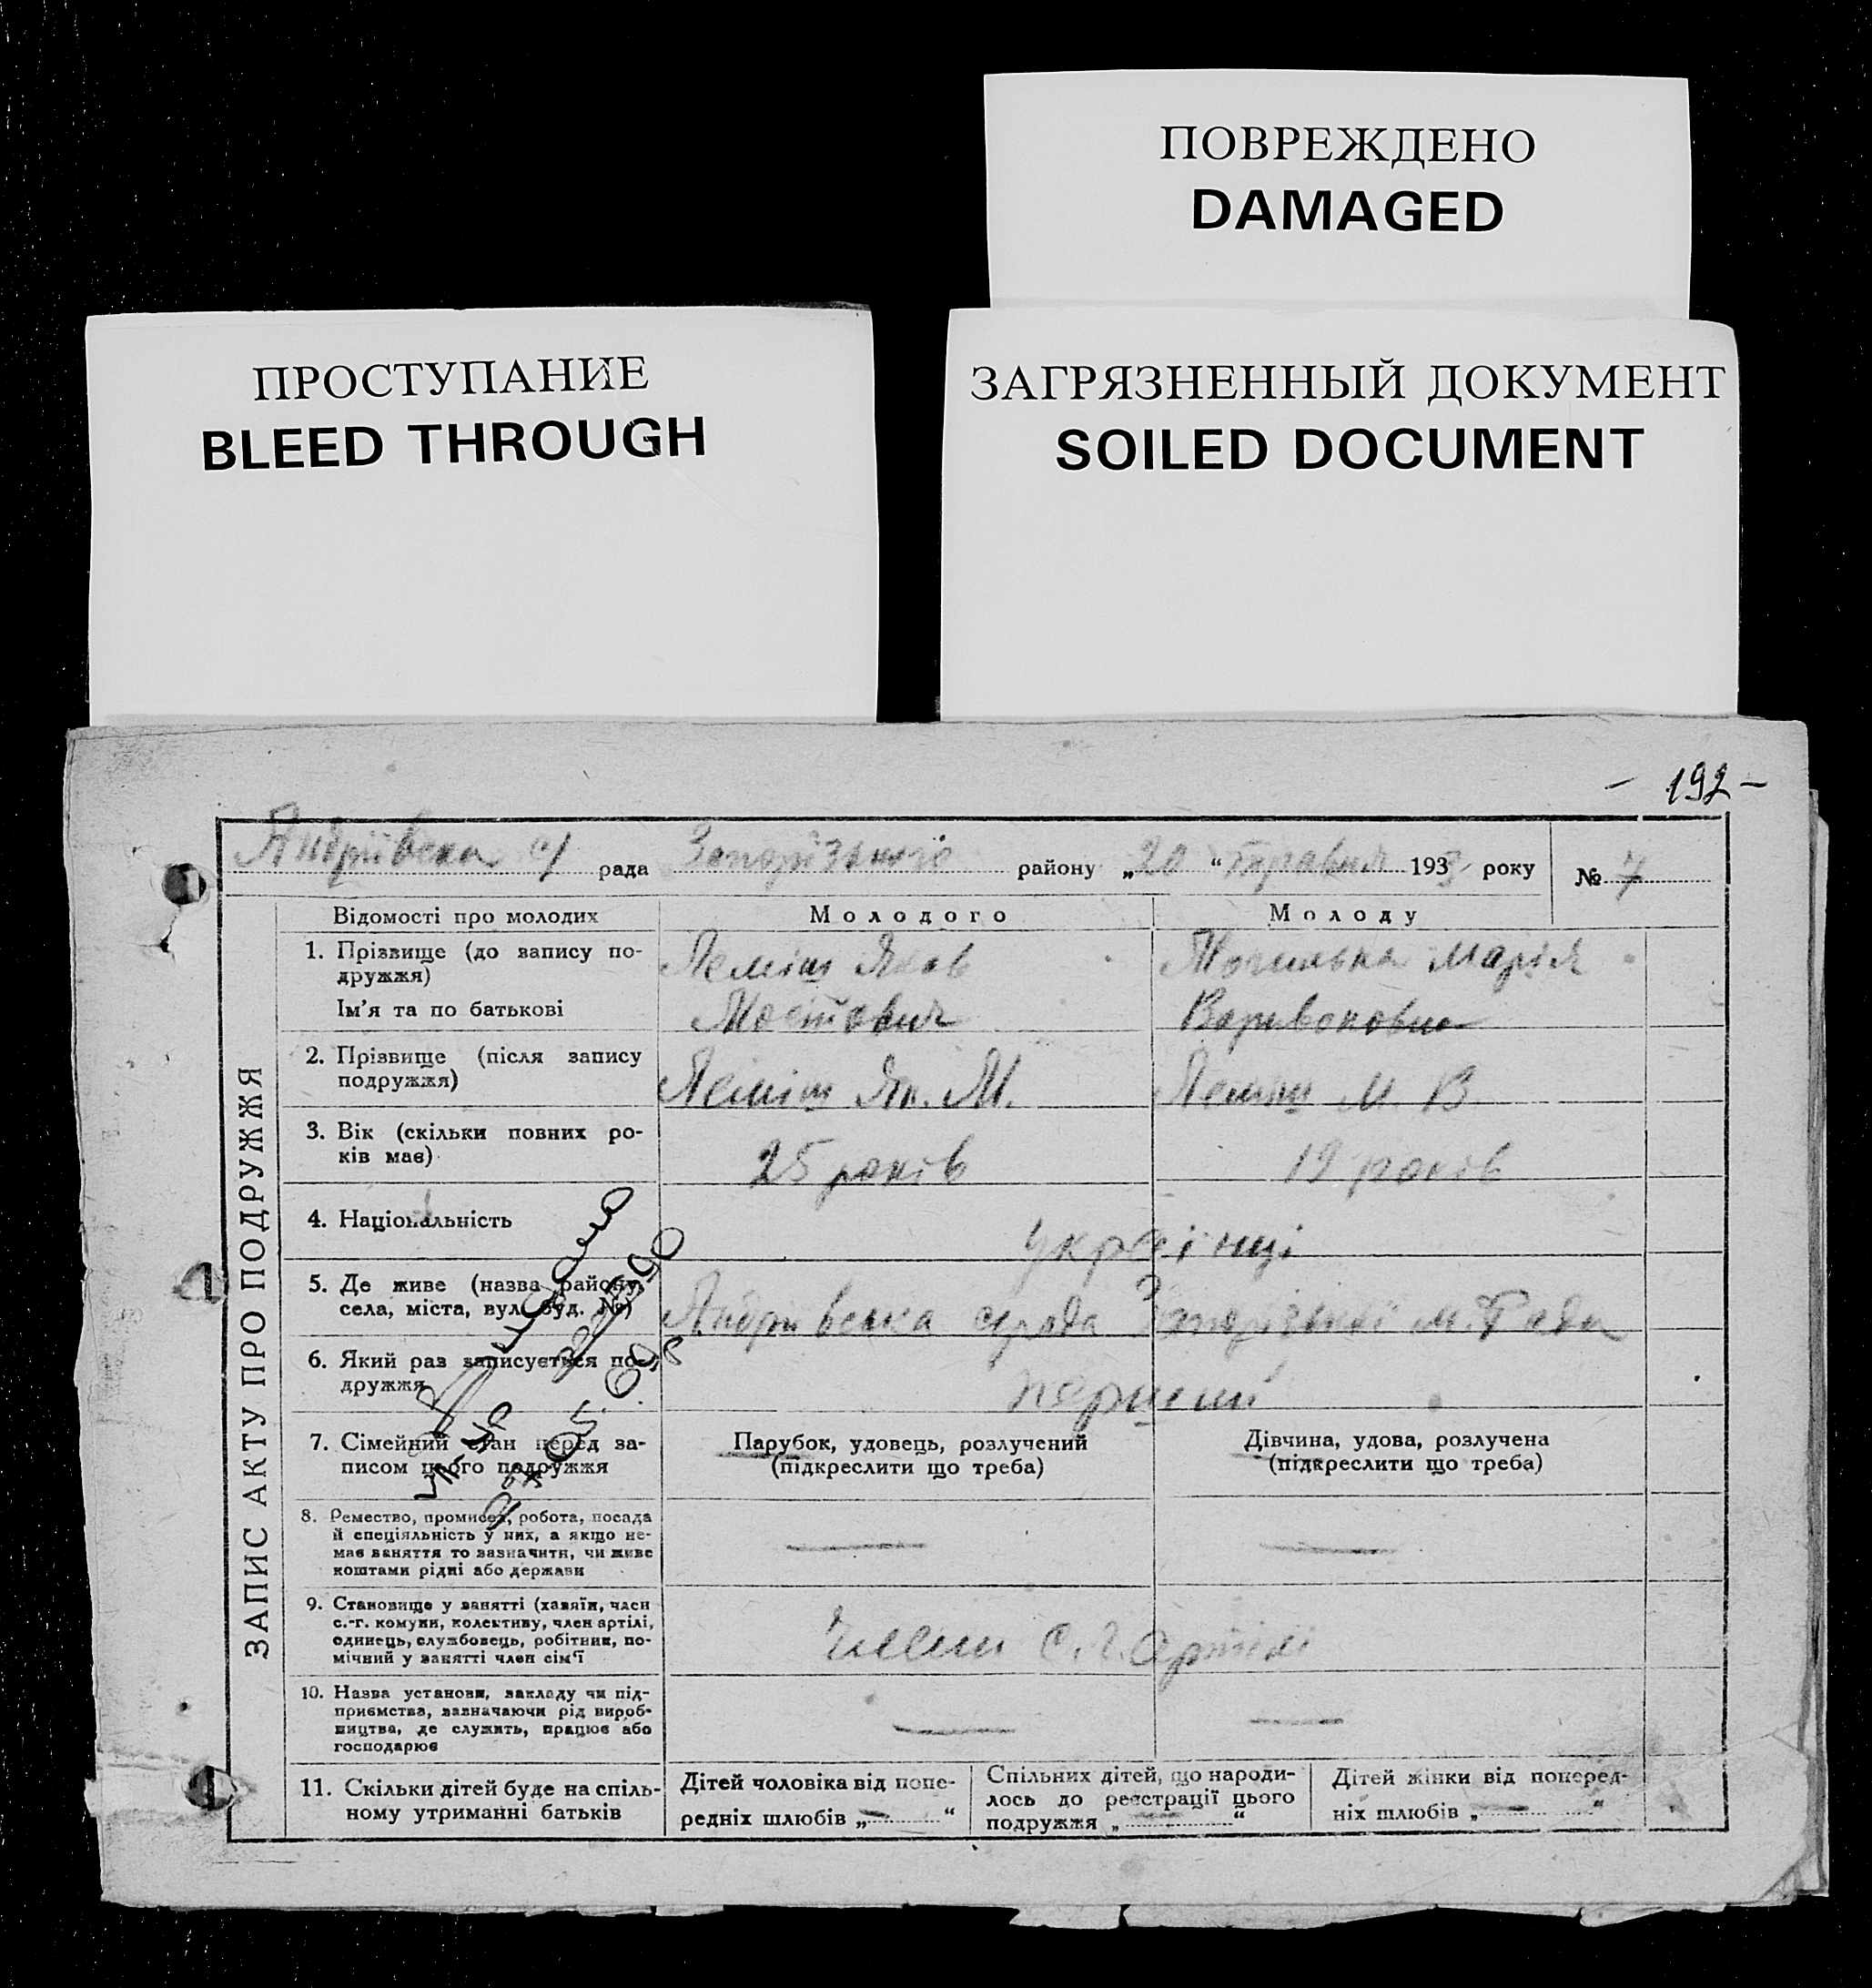 ПОВРЕЖДЕНО
DAMAGED
ПРОСТУПАНИЕ
BLEED THROUGH
ЗАГРЯЗНЕННЫЙ ДОКУМЕНТ
SOILED DOCUMENT
- 192 -
Андріївська с/ рада Запорізького району „20“ Травня 193 року № 7
ЗАПИС АКТУ ПРО ПОДРУЖЖЯ
Відомості про молодих
Молодого
Молоду
1. Прізвище (до запису по-
дружжя)
Ім'я та по батькові
Леміш Яков
Мостович
Могилька Марія
Варивоновна
2. Прізвище (після запису
подружжя)
Леміш Як. М.
Леміш М. В.
3. Вік (скільки повних ро-
ків має)
25 років
19 років
4. Національність
Українці
5. Де живе (назва району,
села, міста, вул. буд. №)
Андріівська с/рада Запорізької м. Ради
6. Який раз записується по-
дружжя
перший
7. Сімейний стан перед за-
писом цього подружжя
Парубок, удовець, розлучений
(підкреслити що треба)
Дівчина, удова, розлучена
(підкреслити що треба)
8. Ремество, промисел, робота, посада
й спеціяльність у них, а якщо не-
має заняття то зазначити, чи живе
коштами рідні або держави
9. Становище у занятті (хазяїн, член
с.-г. комуни, колективу, член артілі,
одинець, службовець, робітник, по-
мічний у занятті член сім'ї
Члени С. Г. Артілі
10. Назва установи, закладу чи під-
приємства, зазначаючи рід вироб-
ництва, де служить, працює або
господарює
11. Скільки дітей буде на спіль-
ному утриманні батьків
Дітей чоловіка від попе-
редніх шлюбів „ “
Спільних дітей, що народи-
лось до реєстрації цього
подружжя „ “
Дітей жінки від поперед-
ніх шлюбів „ “